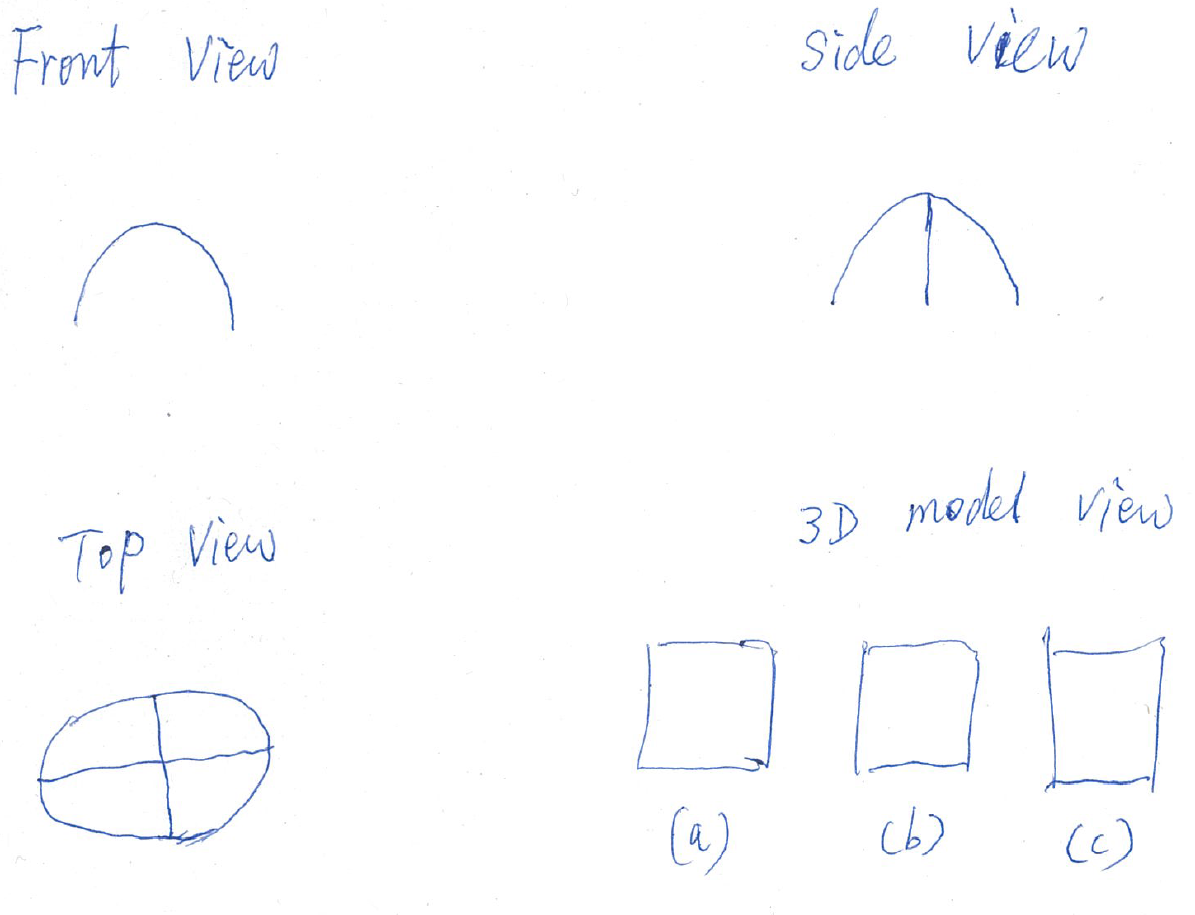 Front View
Side View
Top View
3D model view
(a)
(b)
(c)